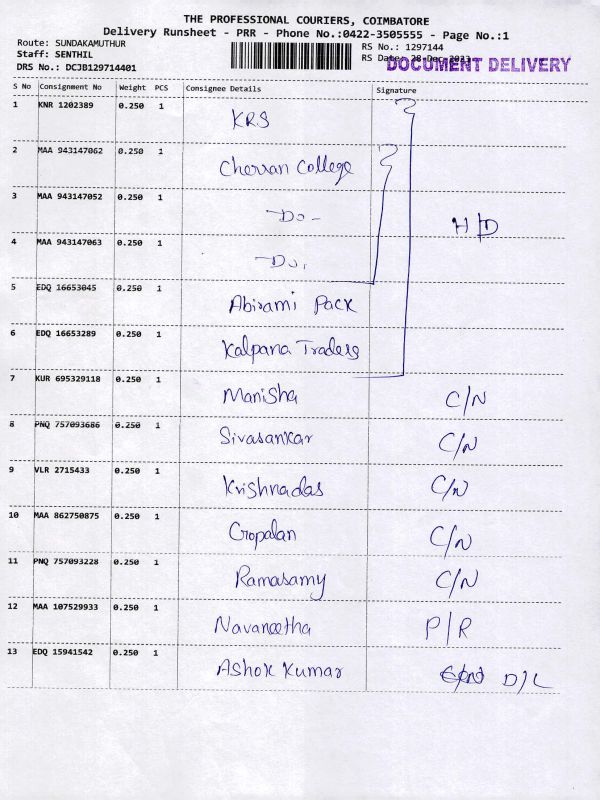 THE PROFESSIONAL COURIERS, COIMBATORE
Delivery Runsheet - PRR - Phone No.:0422-3505555 - Page No.:1
Route: SUNDAKAMUTHUR
Staff: SENTHIL
DRS No.: DCJB129714401
RS No.: 1297144
RS Date: 28-Dec-2023
DOCUMENT DELIVERY
S No Consignment No Weight PCS Consignee Details Signature
1 KNR 1202389 0.250 1 KRS
2 MAA 943147062 0.250 1 Cherran College
3 MAA 943147052 0.250 1 -Do- H/D
4 MAA 943147063 0.250 1 -Do.
5 EDQ 16653045 0.250 1 Abirami Pack
6 EDQ 16653289 0.250 1 Kalpana Traders
7 KUR 695329118 0.250 1 Manisha C/N
8 PNQ 757093686 0.250 1 Sivasankar C/N
9 VLR 2715433 0.250 1 Krishnadas C/N
10 MAA 862750875 0.250 1 Gopalan C/N
11 PNQ 757093228 0.250 1 Ramasamy C/N
12 MAA 107529933 0.250 1 Navaneetha P/R
13 EDQ 15941542 0.250 1 Ashok Kumar D/L